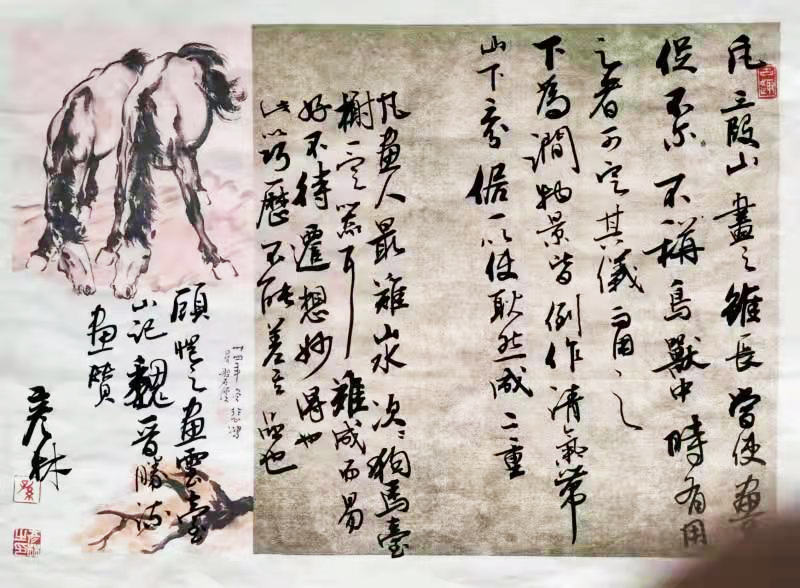 凡三段山畫之雖長當使畫甚
促不尔不稱鳥獸中時有用
之者可定其儀而用之
下為澗物景皆倒作清氣帶
山下三分倨一以使耿然成二重
凡畫人最難山水次々狗馬臺
榭一定器耳難成而易
好不待遷想妙得也
此以巧歷不能差其品也
顧愷之畫雲臺
山记魏晉勝流
畫贊
彦林
悲鴻